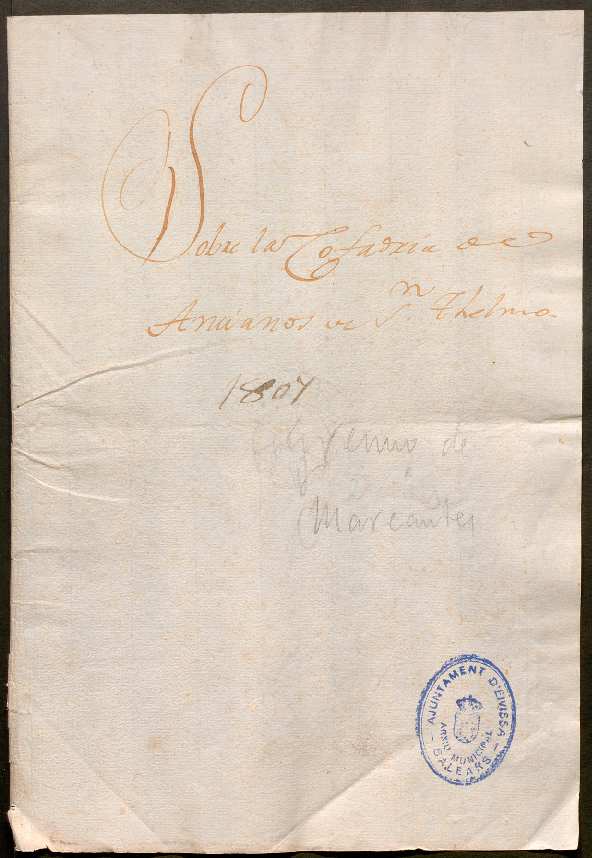 Sobre la Cofadria de
Ancianos de Sn Thelmo
1807
Gremio de
Mareantes
AJUNTAMENT D'EIVISSA
ARXIU MUNICIPAL
BALEARS